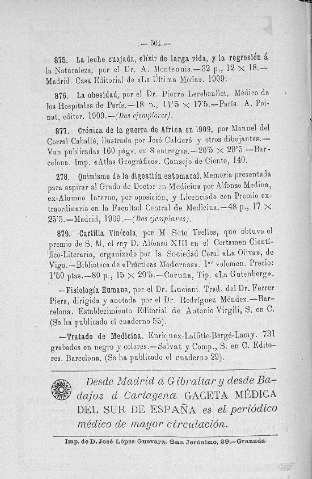 — 504 —
875. La leche cuajada, elixir de larga vida, y la regresión á
la Naturaleza, por el Dr. A. Monteuuis.—32 p., 12 × 18.—
Madrid. Casa Editorial de «La Última Moda». 1909.
876. La obesidad, por el Dr. Pierre Lereboullet, Médico de
los Hospitales de París.—18 p., 11'5 × 17'5.—París. A. Poi-
nat, editor. 1909.—(Dos ejemplares).
877. Crónica de la guerra de Africa en 1909, por Manuel del
Corral Caballé, ilustrada por José Calderé y otros dibujantes.—
Van publicadas 160 págs. en 8 entregas.—20'5 × 29'5 —Bar-
celona. Imp. «Atlas Geográfico». Consejo de Ciento, 140.
878. Quimismo de la digestión estomacal. Memoria presentada
para aspirar al Grado de Doctor en Medicina por Alfonso Medina,
ex-Alumno Interno, por oposición, y Licenciado con Premio ex-
traordinario en la Facultad Central de Medicina.—48 p., 17 ×
25'5.—Madrid, 1909.—(Dos ejemplares).
879. Cartilla Vinícola, por M Soto Trelles, que obtuvo el
premio de S. M. el rey D. Alfonso XIII en el Certamen Cientí-
fico-Literario, organizado por la Sociedad Coral «La Oliva», de
Vigo.—Biblioteca de «Prácticas Modernas». 1er volumen. Precio:
1'50 ptas.—80 p., 15 × 20'5.—Coruña, Tip. «La Gutenberg».
—Fisiología Humana, por el Dr. Luciani. Trad. del Dr. Ferrer
Piera, dirigida y anotada por el Dr. Rodríguez Méndez.—Bar-
celona. Establecimiento Editorial de Antonio Virgili, S. en C.
(Se ha publicado el cuaderno 55).
—Tratado de Medicina. Enriquez-Laffitte-Bergé-Lamy. 731
grabados en negro y colores.—Salvat y Comp., S. en C. Edito-
res. Barcelona. (Se ha publicado el cuaderno 29).
Desde Madrid á Gibraltar y desde Ba-
dajoz á Cartagena GACETA MÉDICA
DEL SUR DE ESPAÑA es el periódico
médico de mayor circulación.
Imp. de D. José López Guevara, San Jerónimo, 29.—Granada